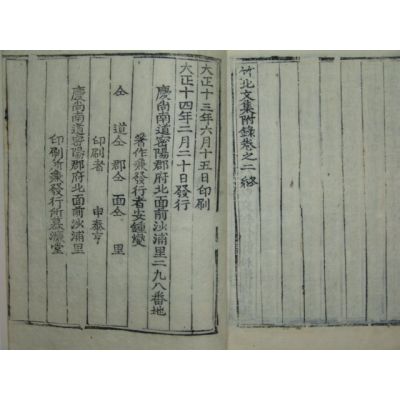 竹北文集附錄卷之二終
大正十三年六月十五日印刷
大正十四年二月二十日發行
慶尚南道密陽郡府北面前沙浦里二九八番地
著作兼發行者安鍾燮
仝 道仝 郡仝 面仝 里
印刷者 申泰亨
慶尚南道密陽郡府北面前沙浦里
印刷所兼發行所慕濂堂